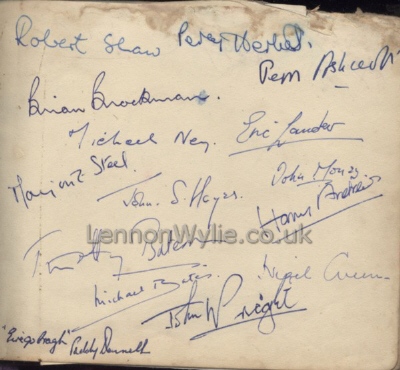 Robert Shaw Peter Herbert.
Pem Ashcroft
Brian Brockman.
Michael Ney. Eric Lander
Marjorie Steel. John Money.
John. S. Hayes. Harry Andrews
LennonWylie.co.uk
Timothy Bateson
Michael Bates. Nigel Green
John Wright
"Eringo Bragh" Paddy Donnell